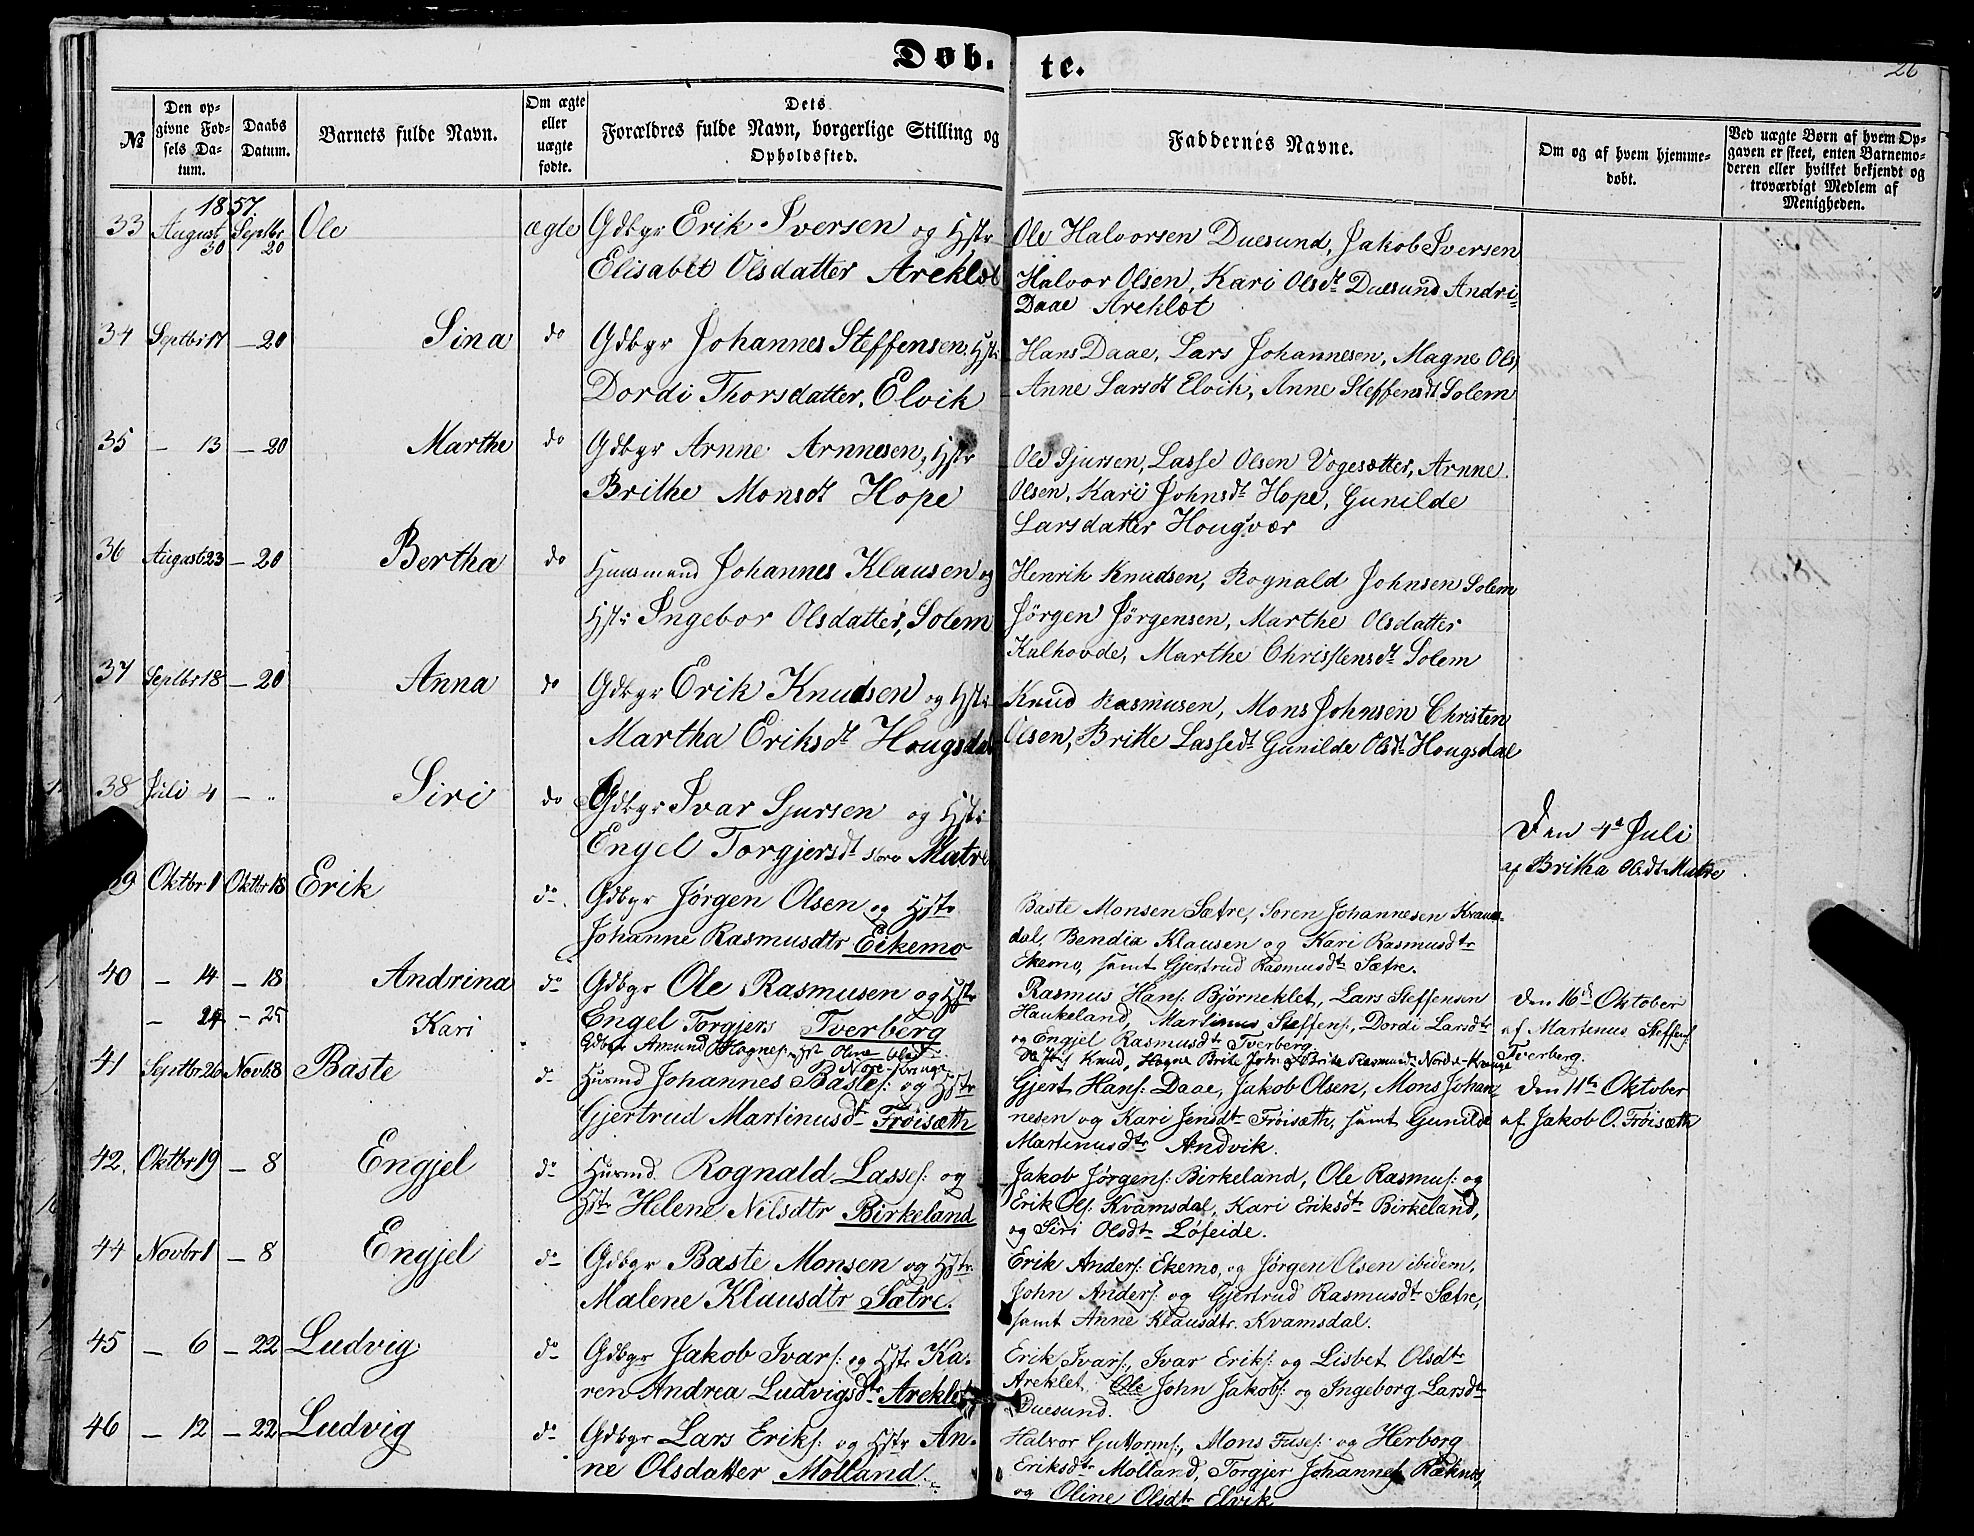 Døb. te.
26
№
Den op-
givne Fød-
sels Da-
tum.
Daabs
Datum.
Barnets fulde Navn.
Om ægte
eller
uægte
fødte.
Dets
Forældres fulde Navn, borgerlige Stilling og
Opholdssted.
Faddernes Navne.
Om og af hvem hjemme-
døbt.
Ved uægte Børn af hvem Op-
gaven er skeet, enten Barnemo-
deren eller hvilket bekjendt og
troværdigt Medlem af
Menigheden.
1857
33 August 30 Septbr 20 Ole ægte Gdbgr Erik Iversen og Hstr
Elisabet Olsdatter Areklet
Ole Halvorsen Duesund, Jakob Iversen
Halvor Olsen, Kari Olsdt Duesund Andri-
Daae Areklet
34 Septbr 17 — 20 Sina do Gdbgr Johannes Steffensen, Hstr
Dordi Thorsdatter, Elvik
Hans Daae, Lars Johannesen, Magne Ols,
Anne Larsdt Elvik, Anne Steffensdt Solem
35 — 13 — 20 Marthe do Gdbgr Arnne Arnnesen, Hstr
Brithe Monsdt Hope
Ole Sjursen, Lasse Olsen Vogesætter, Arnne
Olsen, Kari Johnsdt Hope, Gunilde
Larsdatter Hougsvær
36 August 23 — 20 Bertha do Huusmand Johannes Klausen og
Hstr Ingebor Olsdatter, Solem
Henrik Knudsen, Rognald Johnsen Solem
Jørgen Jørgensen, Marthe Olsdatter
Kalhovde, Marthe Christensdt Solem
37 Septbr 18 — 20 Anna do Gdbgr Erik Knudsen og Hstr
Martha Eriksdt Hougsdal
Knud Rasmusen, Mons Johnsen Christen
Olsen, Britte Lassedt Gunilde Olsdt Hougsdal
38 Juli 4 — " Siri do Gdbgr Ivar Sjursen og Hstr
Engel Torgjersdt store Matre
Den 4de Juli
af Britha Olsdt Matre
39 Oktbr 1 Oktbr 18 Erik do. Gdbgr Jørgen Olsen og Hstr
Johanne Rasmusdtr Eikemo
Baste Monsen Sætre, Søren Johannesen Kvams-
dal, Bendix Klausen og Kari Rasmusdtr
Ekemo, samt Gjertrud Rasmusdt Sætre.
40 — 14 — 18 Andrina do Gdbgr Ole Rasmusen og Hstr
Engel Torgjers Tverberg
Rasmus Hans: Bjørneklet, Lars Steffensen
Haukeland, Martinus Steffens:, Dordi Larsdtr
og Engjel Rasmusdtr Tverberg.
Den 16d Oktober
af Martinus Steffens:
Tverberg.
— 24 — 25 Kari
Gdbgr Amund Hognes: Hstr Oline Olsd
Nore-Kvinge
Knud, Hogne Brite Johns Brite Rasmusd Nordre-Kvinge
41 Septbr 26 Novb. 8 Baste do Husmd Johannes Bastes: og Hstr
Gjertrud Martinusdt Frøisæth
Gjert Hans: Daae, Jakob Olsen, Mons Johan-
nesen og Kari Jensdtr Frøisæth, samt Gunilde
Martinusdtr Andvik.
Den 11te Oktober
af Jakob O. Frøisæth
42. Oktbr 19 — 8 Engjel do Husmd. Rognald Lasses: og
Hstr Helene Nilsdtr Birkeland
Jakob Jørgens: Birkeland, Ole Rasmus: og
Erik Ols: Kvamsdal, Kari Eriksdtr Birkeland,
og Siri Olsdtr Løfeide.
44 Novbr 1 — 8 Engjel do Gdbgr Baste Monsen og Hstr
Malene Klausdtr Sætre.
Erik Anders: Ekemo, og Jørgen Olsen ibidem,
John Anders: og Gjertrud Rasmusdtr Sætre,
samt Anne Klausdtr. Kvamsdal.
45 — 6 — 22 Ludvig do Gdbgr Jakob Ivars: og Hstr Ka-
ren Andrea Ludvigsdtr Areklet
Erik Ivars:, Ivar Eriks: og Lisbet Olsdtr
Areklet, Ole John Jakobs: og Ingeborg Larsdtr
Duesund.
46 — 12 — 22 Ludvig do Gdbgr Lars Eriks: og Hstr An-
ne Olsdatter Molland.
Halvor Guttorms:, Mons Fuses: og Herborg
Eriksdtr Molland, Torgjer Johannes: Ræknes,
og Oline Olsdtr Elvik